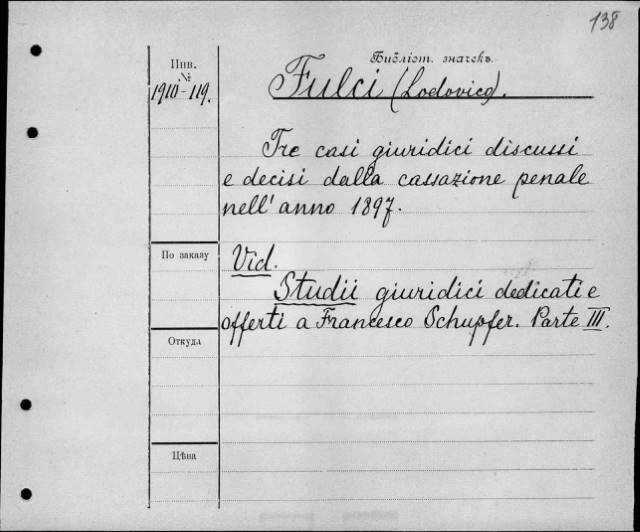 138
Инв.
№
1910-119.
Библіот. значекъ.
Fulci (Lodovico).
Tre casi giuridici discussi
e decisi dalla cassazione penale
nell' anno 1897.
По заказу
Vid.
Studii giuridici dedicati e
offerti a Francesco Schupfer. Parte III.
Откуда
Цѣна